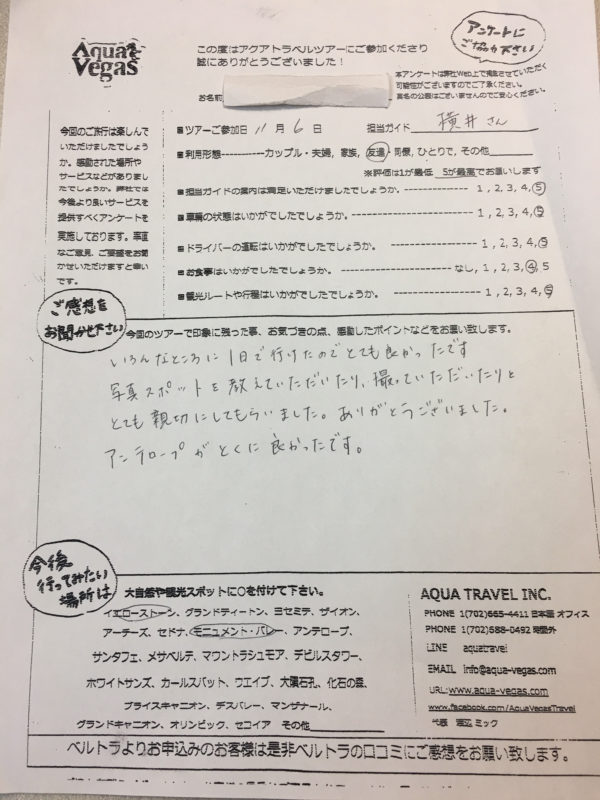 Aqua Vegas
この度はアクアトラベルツアーにご参加くださり
誠にありがとうございました！
アンケートに
ご協力下さい
本アンケートは弊社Web上で掲載させていただく
可能性がございますのでご了承ください。
実名の公表はございませんのでご安心ください。
お名前
今回のご旅行は楽しんで
いただけましたでしょう
か。感動された場所や
サービスなどがありまし
たでしょうか。弊社では
今後より良いサービスを
提供すべくアンケートを
実施しております。率直
なご意見、ご要望をお聞
かせいただけますと幸い
です。
■ツアーご参加日 11月 6日 担当ガイド 横井さん
■利用形態-----------カップル・夫婦, 家族, 友達・同僚, ひとりで, その他
※評価は1が最低 5が最高でお願いします
■担当ガイドの案内は満足いただけましたでしょうか。 ---------- 1, 2, 3, 4, 5
■車輛の状態はいかがでしたでしょうか。 ---------- 1, 2, 3, 4, 5
■ドライバーの運転はいかがでしたでしょうか。 ---------- 1, 2, 3, 4, 5
■お食事はいかがでしたでしょうか。 ---------- なし, 1, 2, 3, 4, 5
■観光ルートや行程はいかがでしたでしょうか。 ---------- 1, 2, 3, 4, 5
ご感想を
お聞かせ下さい
今回のツアーで印象に残った事、お気づきの点、感動したポイントなどをお願い致します。
いろんなところに1日で行けたのでとても良かったです
写真スポットを教えていただいたり、撮っていただいたりと
とても親切にしてもらいました。ありがとうございました。
アンテロープがとくに良かったです。
今後
行ってみたい
場所は
大自然や観光スポットに○を付けて下さい。
イエローストーン、グランドティートン、ヨセミテ、ザイオン、
アーチーズ、セドナ、モニュメント・バレー、アンテロープ、
サンタフェ、メサベルデ、マウントラシュモア、デビルスタワー、
ホワイトサンズ、カールスバット、ウエイブ、大隕石孔、化石の森、
ブライスキャニオン、デスバレー、マンザナール、
グランドキャニオン、オリンピック、セコイア その他
AQUA TRAVEL INC.
PHONE 1(702)665-4411 日本語 オフィス
PHONE 1(702)588-0492 時間外
LINE aquatravel
EMAIL info@aqua-vegas.com
URL: www.aqua-vegas.com
www.facebook.com/AquaVegasTravel
代表 渡辺 ミック
ベルトラよりお申込みのお客様は是非ベルトラの口コミにご感想をお願い致します。